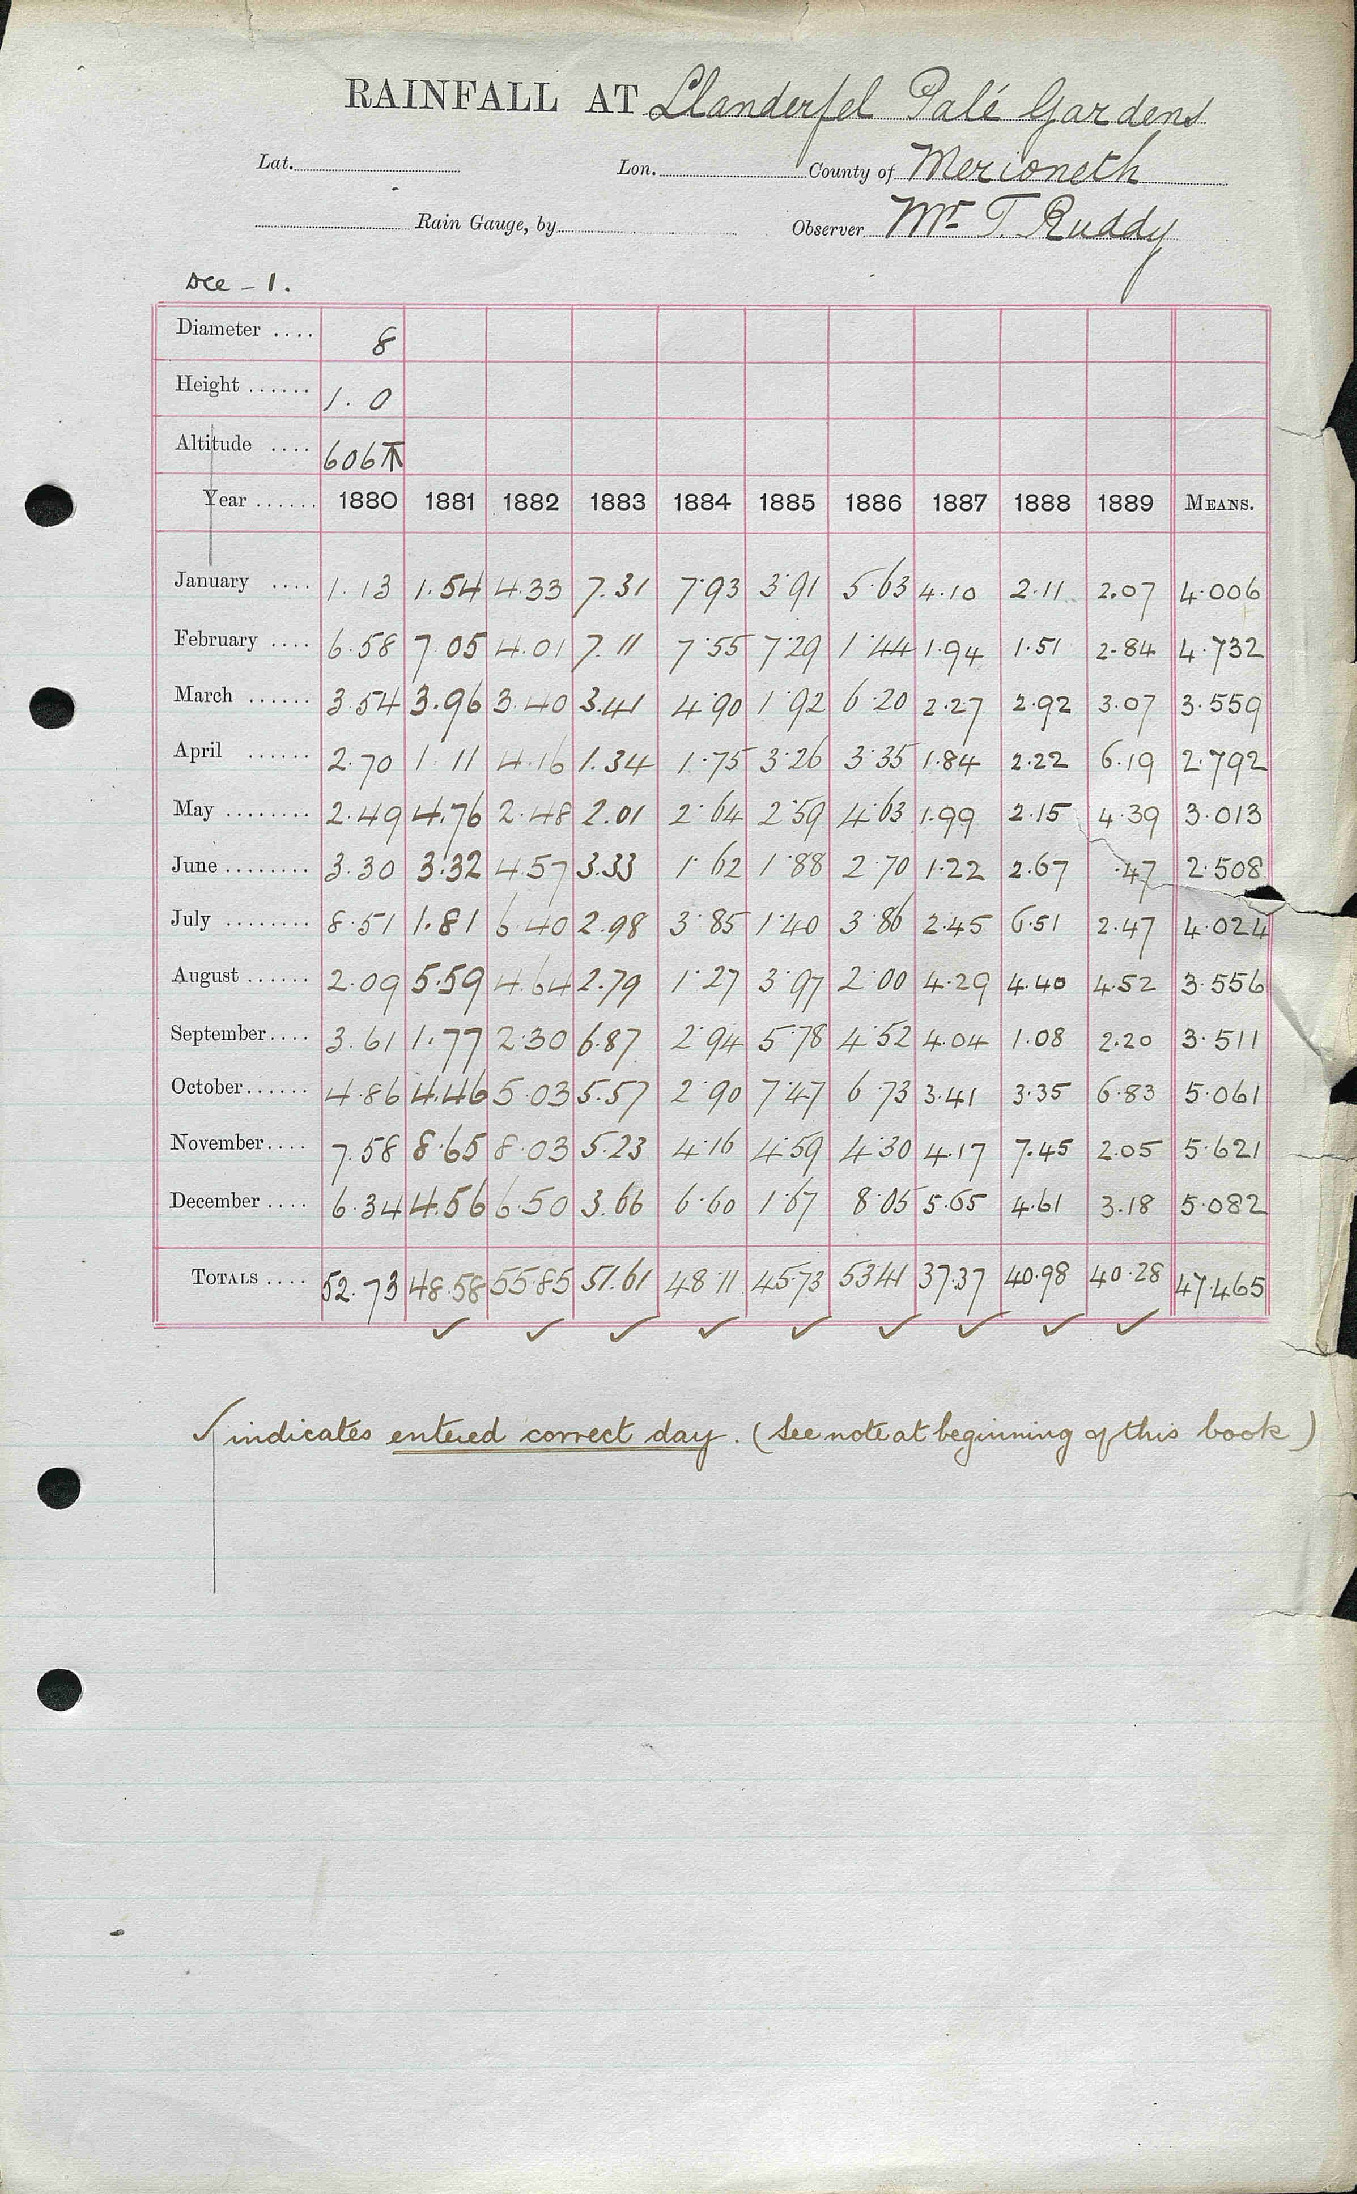 RAINFALL AT Llanderfel Palé Gardens
Lat. Lon. County of Merioneth
Rain Gauge, by Observer Mr T. Ruddy
Dec - 1.
Diameter .... 8
Height ...... 1. 0
Altitude .... 606
Year ...... 1880 1881 1882 1883 1884 1885 1886 1887 1888 1889 MEANS.
January .... 1.13 1.54 4.33 7.31 7.93 3.91 5.63 4.10 2.11 2.07 4.006
February .... 6.58 7.05 4.01 7.11 7.55 7.29 1.44 1.94 1.51 2.84 4.732
March ...... 3.54 3.96 3.40 3.41 4.90 1.92 6.20 2.27 2.92 3.07 3.559
April ...... 2.70 1.11 4.16 1.34 1.75 3.26 3.35 1.84 2.22 6.19 2.792
May ........ 2.49 4.76 2.48 2.01 2.64 2.59 4.63 1.99 2.15 4.39 3.013
June ........ 3.30 3.32 4.57 3.33 1.62 1.88 2.70 1.22 2.67 .47 2.508
July ........ 8.51 1.81 6.40 2.98 3.85 1.40 3.86 2.45 6.51 2.47 4.024
August ...... 2.09 5.59 4.64 2.79 1.27 3.97 2.00 4.29 4.40 4.52 3.556
September.... 3.61 1.77 2.30 6.87 2.94 5.78 4.52 4.04 1.08 2.20 3.511
October...... 4.86 4.46 5.03 5.57 2.90 7.47 6.73 3.41 3.35 6.83 5.061
November.... 7.58 8.65 8.03 5.23 4.16 4.59 4.30 4.17 7.45 2.05 5.621
December .... 6.34 4.56 6.50 3.66 6.60 1.67 8.05 5.65 4.61 3.18 5.082
TOTALS .... 52.73 48.58 55.85 51.61 48.11 45.73 53.41 37.37 40.98 40.28 47.465
✓ ✓ ✓ ✓ ✓ ✓ ✓ ✓ ✓
✓ indicates entered correct day. (See note at beginning of this book)